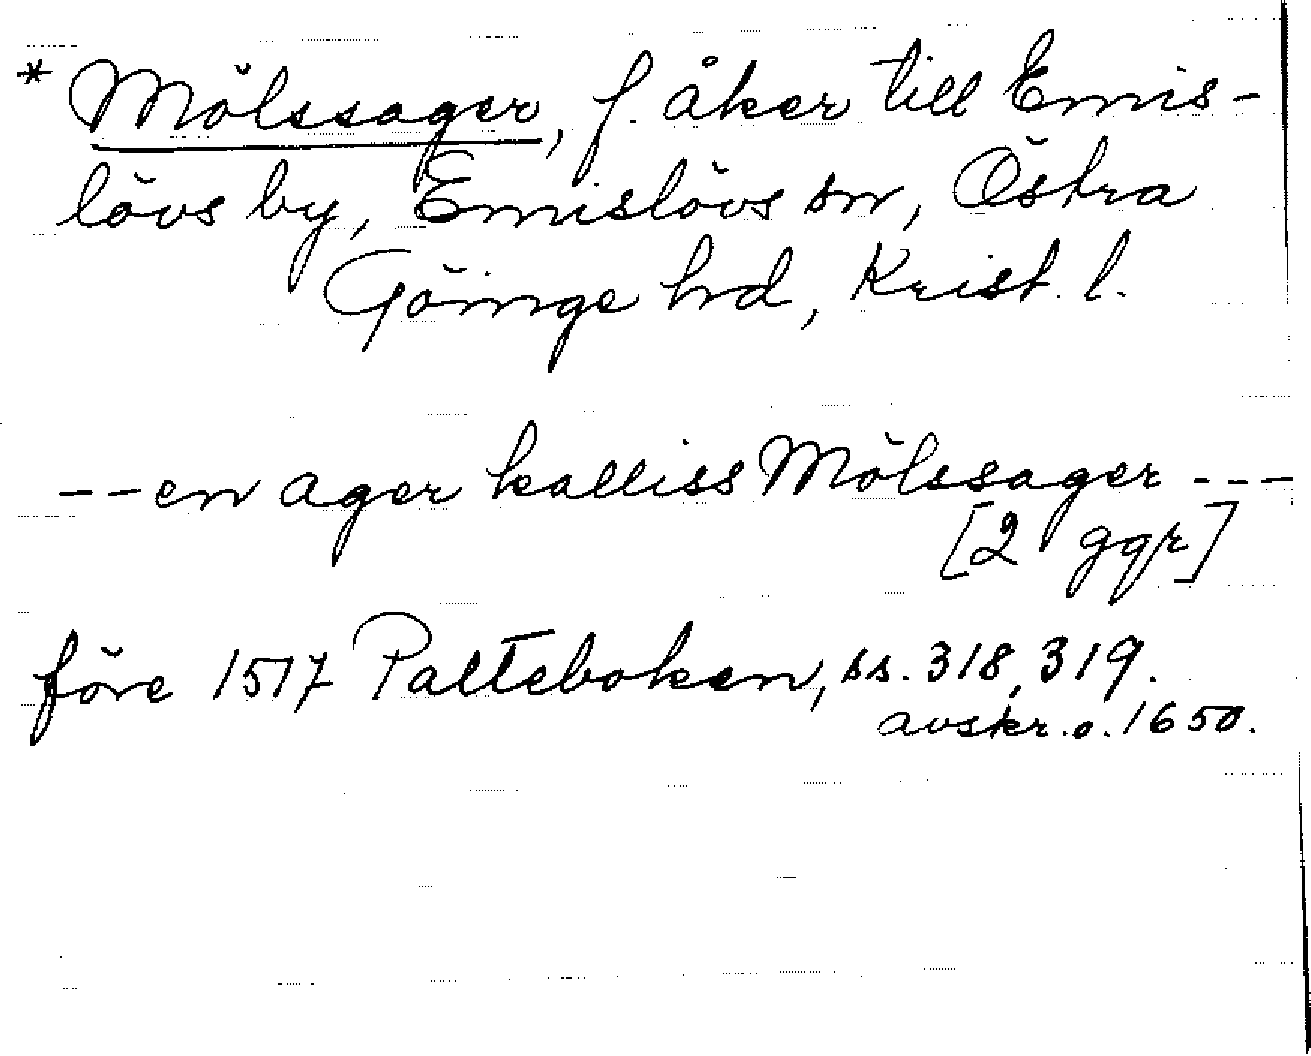 * Mölssager, f. åker till Emis-
lövs by, Emislövs sn, Östra
Göinge hd, Krist. l.
--en ager kalliss Mölssager ---
[2 ggr]
före 1517 Palteboken, ss. 318, 319.
avskr. o. 1650.